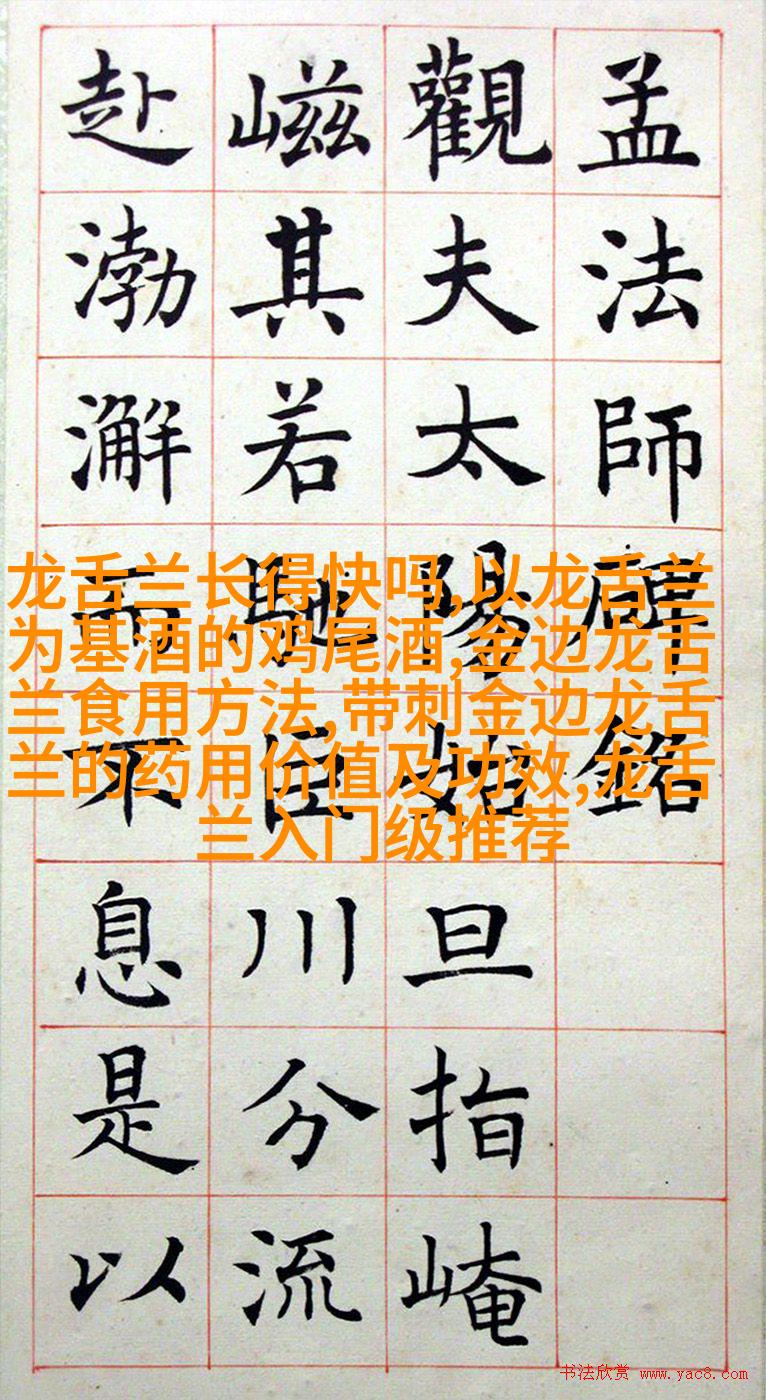 孟法師碑銘
觀夫太陽始旦指崦
嵫其若馳巨川分流
赴渤澥而不息是以
龙舌兰长得快吗,以龙舌兰
为基酒的鸡尾酒,金边龙舌
兰食用方法,带刺金边龙舌
兰的药用价值及功效,龙舌
兰入门级推荐
书法欣赏 www.yac8.com